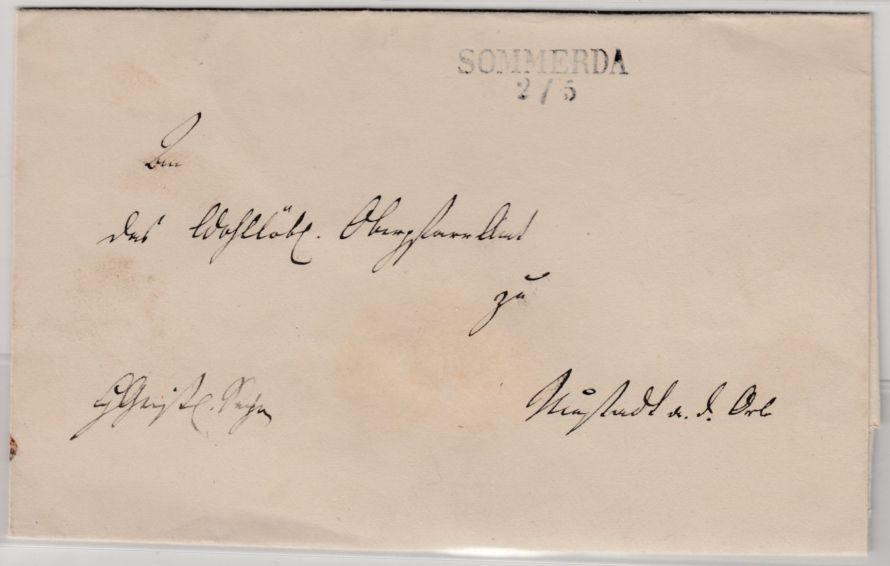 SOMMERDA
2/5
An
das Wohllöbl. Oberpfarr Amt
zu
Geistl. Sache
Neustadt a. d. Orla